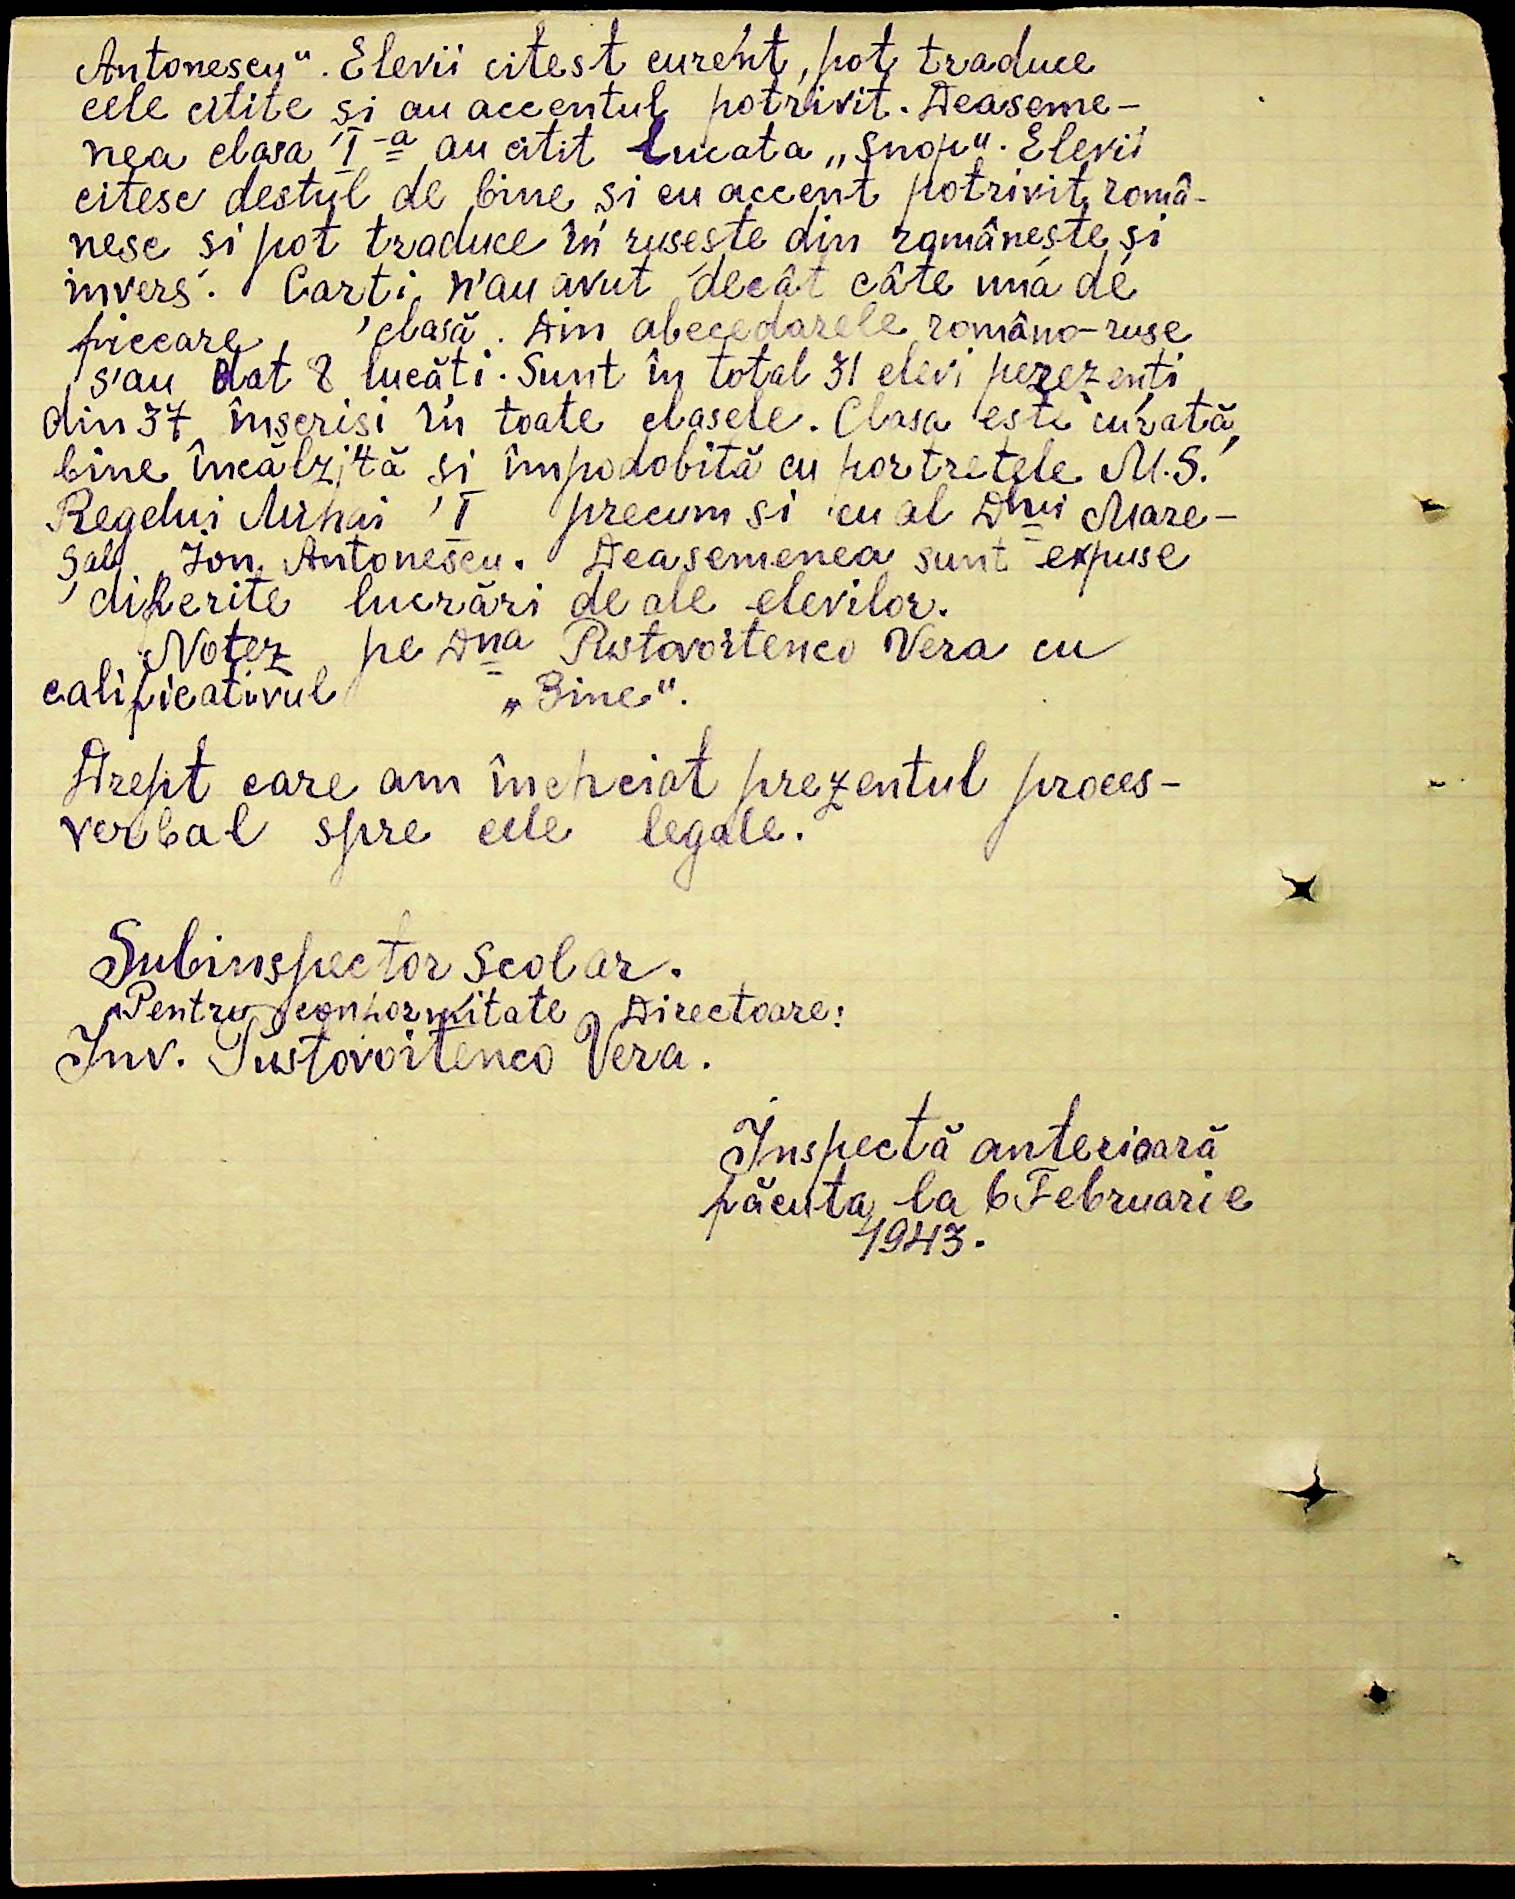 Antonescu". Elevii citest curent, pot traduce
cele citite și au accentul potrivit. Deaseme-
nea clasa I-a au citit bucata „Snop". Elevii
citesc destul de bine și cu accent potrivit româ-
nesc și pot traduce în rusește din românește și
invers. Carti n'au avut decât câte una de
fiecare clasă. Din abecedarele româno-ruse
s'au dat 8 bucăți. Sunt în total 31 elevi perezenți
din 37 înscriși în toate clasele. Clasa este curată,
bine încălzită și împodobită cu portretele M.S.
Regelui Mihai I precum si cu al Dlui Mare-
șal Ion Antonescu. Deasemenea sunt expuse
diferite lucrări de ale elevilor.
Notez pe Dna Pustovoitenco Vera cu
calificativul „Bine".
Drept care am încheiat prezentul proces-
verbal spre cele legale.
Subinspector scolar.
Pentru conformitate Directoare:
Inv. Pustovoitenco Vera.
Inspectă anterioară
făcuta la 6 Februarie
1943.